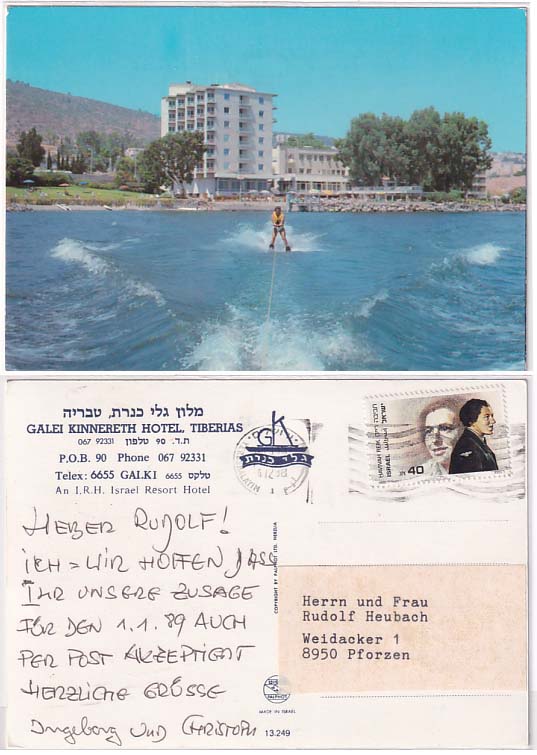 מלון גלי כנרת, טבריה
GALEI KINNERETH HOTEL, TIBERIAS
ת.ד. 90 טלפון 92331 067
P.O.B. 90 Phone 067 92331
Telex: 6655 GALKI 6655 טלקס
An I.R.H. Israel Resort Hotel
GK
גלי כנרת
ישראל
ISRAEL
HAVIVAH REIK
40
LIEBER RUDOLF!
ICH = WIR HOFFEN, DASS
IHR UNSERE ZUSAGE
FÜR DEN 1.1.89 AUCH
PER POST AKZEPTIERT
HERZLICHE GRÜSSE
Ingeborg UND CHRISTOPH
COPYRIGHT BY PALPHOT LTD. HERZLIA
Herrn und Frau
Rudolf Heubach
Weidacker 1
8950 Pforzen
PALPHOT
MADE IN ISRAEL
13.249